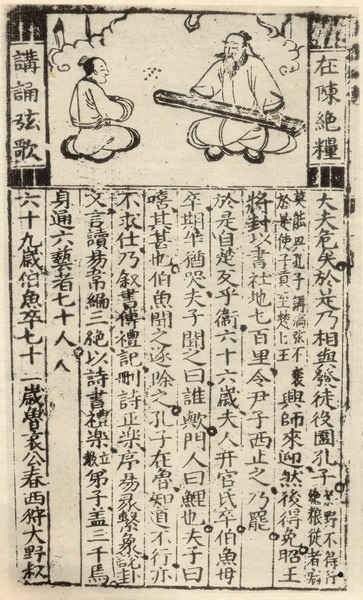 在陳絕糧
講誦弦歌
大夫危矣於是乃相與發徒役圍孔子於野不得行絕糧徒者病
莫能孔子講誦弦不衰於是使子貢至楚王興師來迎然後得免昭王
將封以書社地七百里令尹子西止之乃罷
於是自楚反乎衛六十六歲夫人亓官氏卒伯魚母
卒期年猶哭夫子聞之曰誰歟門人曰鯉也夫子曰
嘻其甚也伯魚聞之遂除之孔子在魯知道不行亦
不求仕乃叙書傳禮記刪詩正樂序易彖繫象說卦
文言讀易韋編三絕以詩書禮樂立教弟子蓋三千焉
身通六藝者七十人人
六十九歲伯魚卒七十一歲魯哀公春西狩大野叔